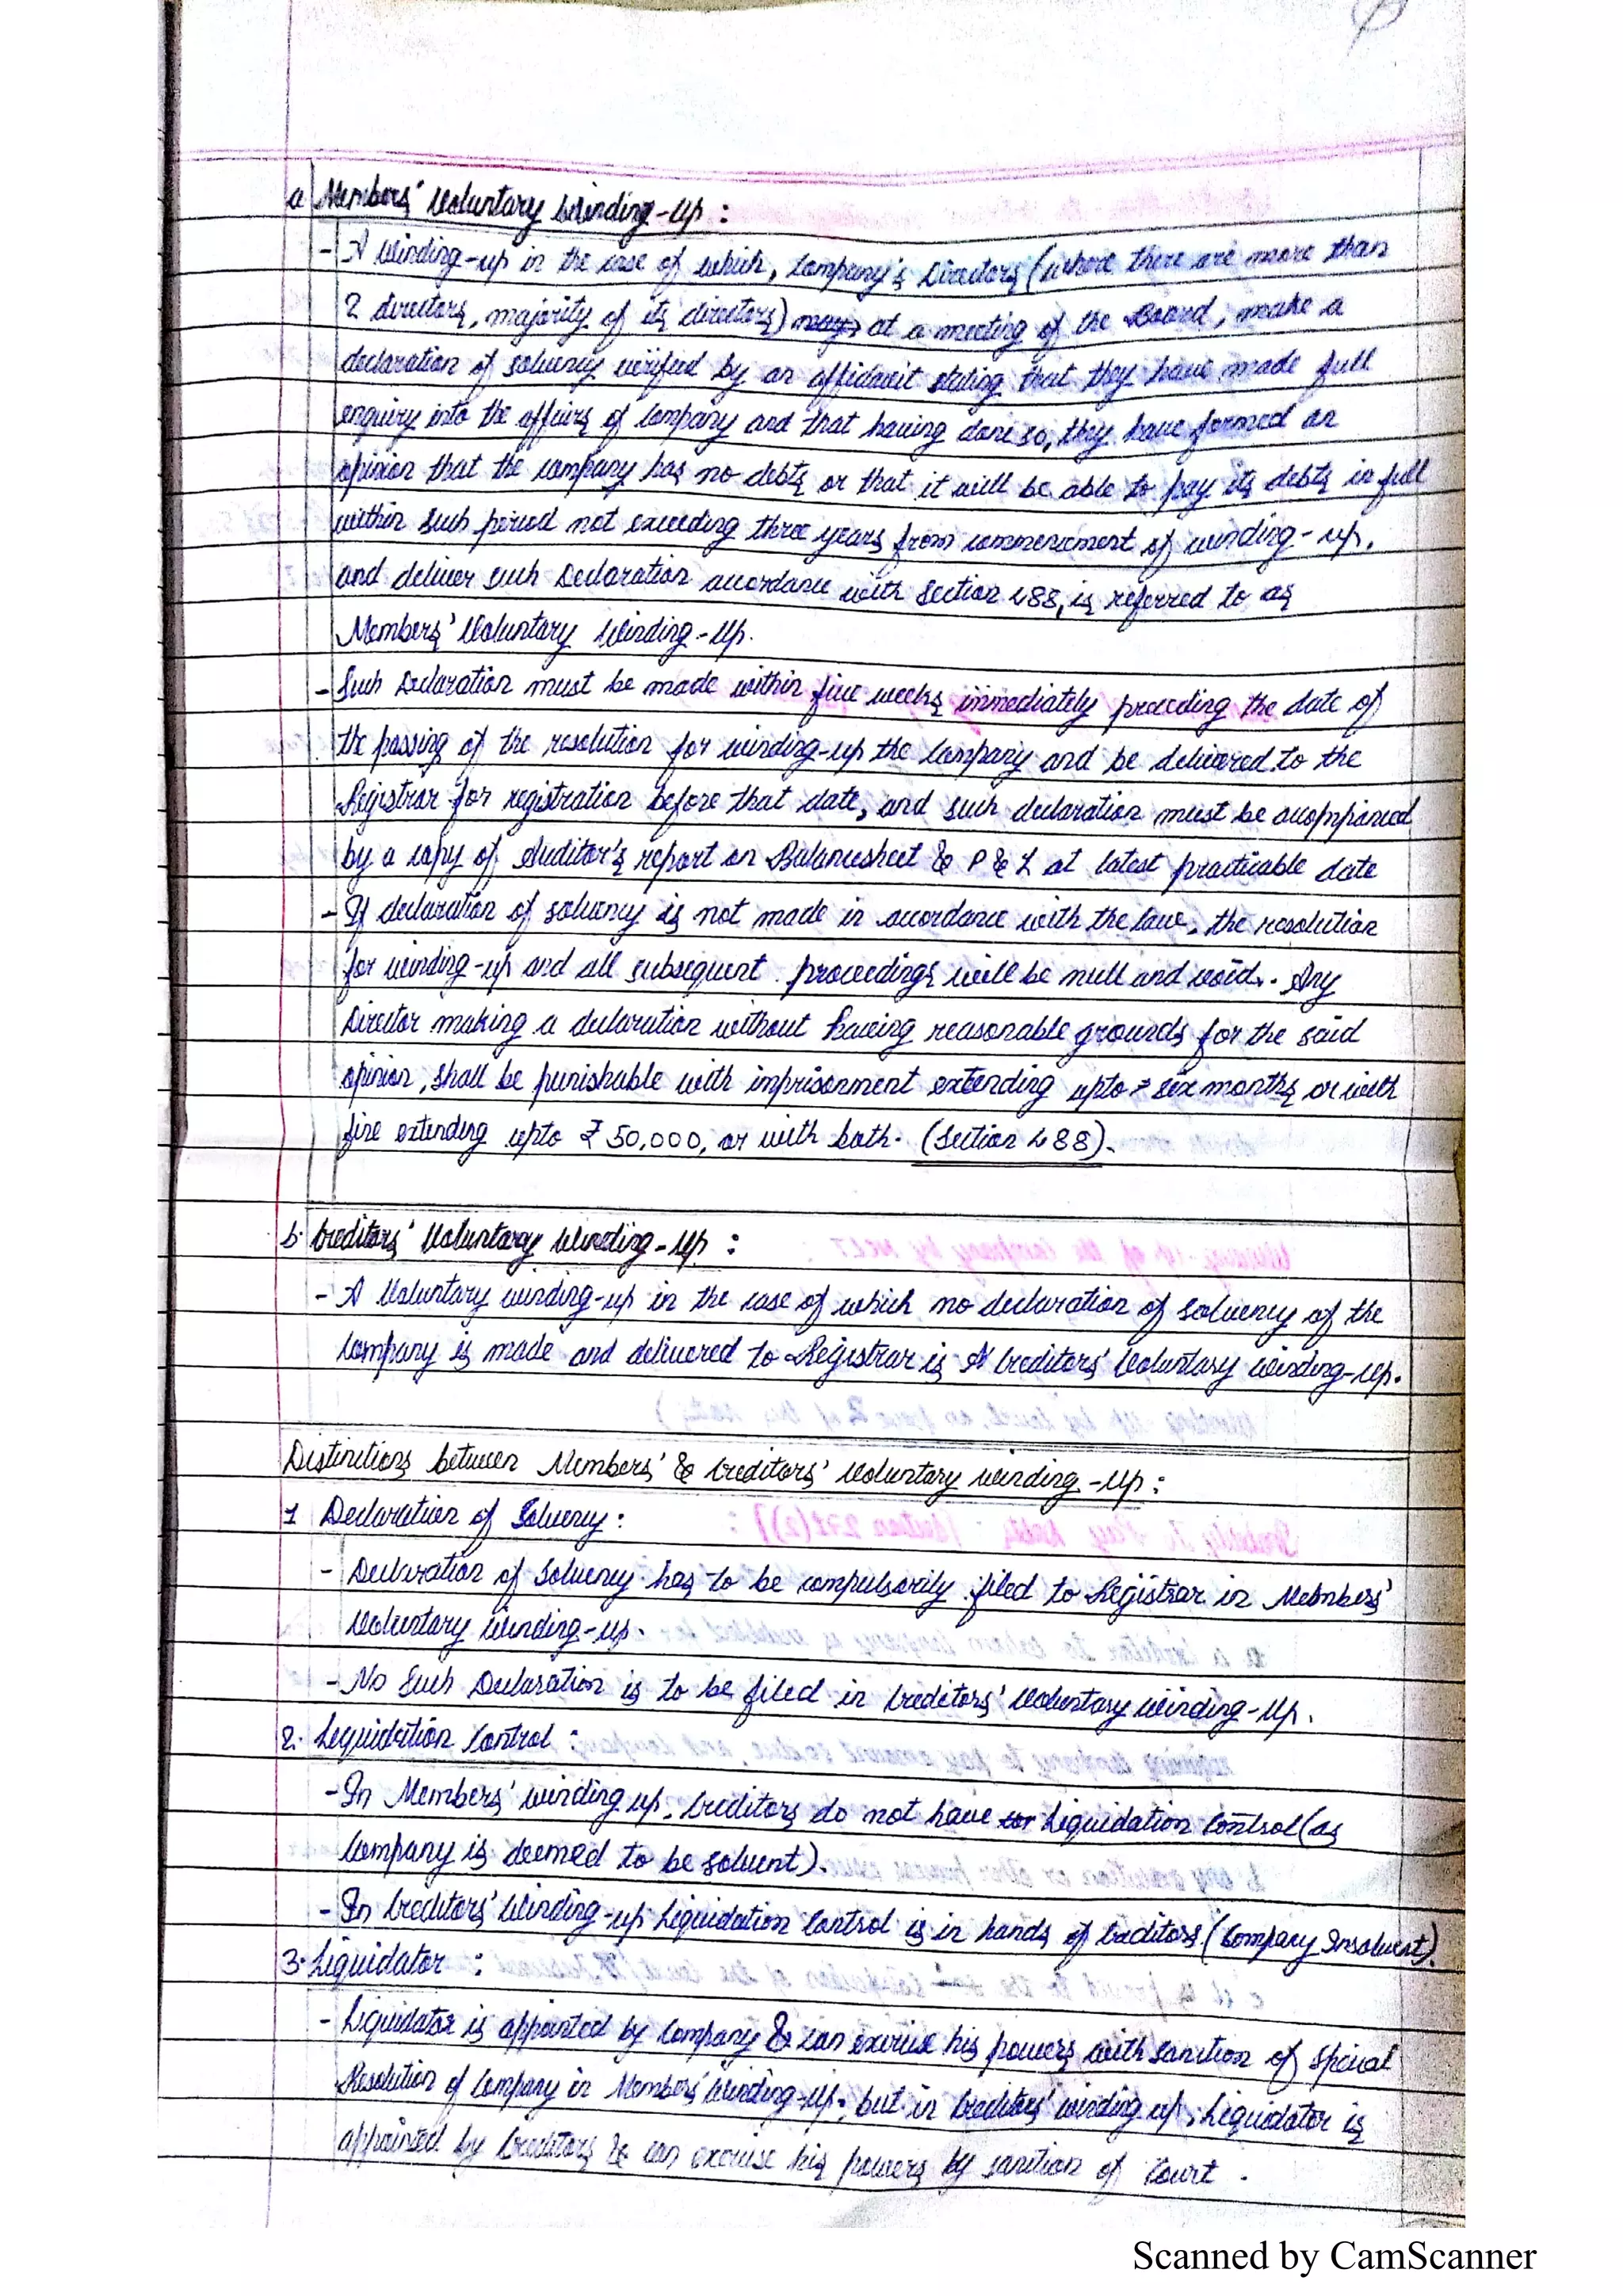 a Members' Voluntary Winding-Up :
- A Winding-up in the case of which, Company's Directors (where there are more than
2 directors, majority of its directors) may at a meeting of the Board, make a
declaration of solvency verified by an affidavit stating that they have made full
enquiry into the affairs of Company and that having done so, they have formed an
opinion that the company has no debts or that it will be able to pay its debts in full
within such period not exceeding three years from commencement of winding-up,
and deliver such Declaration accordance with Section 488, is referred to as
Members' Voluntary Winding-Up.
- Such Declaration must be made within five weeks immediately preceding the date of
the passing of the resolution for winding-up the Company and be delivered to the
Registrar for registration before that date, and such declaration must be accompanied
by a copy of Auditor's report on Balancesheet & P & L at latest practicable date
- If declaration of solvency is not made in accordance with the law, the resolution
for winding-up and all subsequent proceedings will be null and void. Any
Director making a declaration without having reasonable grounds for the said
opinion, shall be punishable with imprisonment extending upto six months or with
fine extending upto ₹ 50,000, or with both. (Section 488).
b. Creditors' Voluntary Winding-Up :
- A Voluntary winding-up in the case of which no declaration of solvency of the
Company is made and delivered to Registrar is A Creditors' Voluntary Winding-Up.
Distinctions between Members' & Creditors' Voluntary Winding-Up :
1 Declaration of Solvency :
- Declaration of Solvency has to be compulsorily filed to Registrar in Members'
Voluntary Winding-up.
- No Such Declaration is to be filed in Creditors' Voluntary Winding-Up.
2. Liquidation Control :
- In Members' winding up, Creditors do not have Liquidation Control (as
Company is deemed to be solvent).
- In Creditors' Winding-up Liquidation Control is in hands of Creditors. (Company Insolvent).
3. Liquidator :
- Liquidator is appointed by Company & can exercise his powers with sanction of Special
Resolution of Company in Members' Winding-up, but in Creditors' winding up, Liquidator is
appointed by Creditors & can exercise his powers by sanction of Court.
Scanned by CamScanner